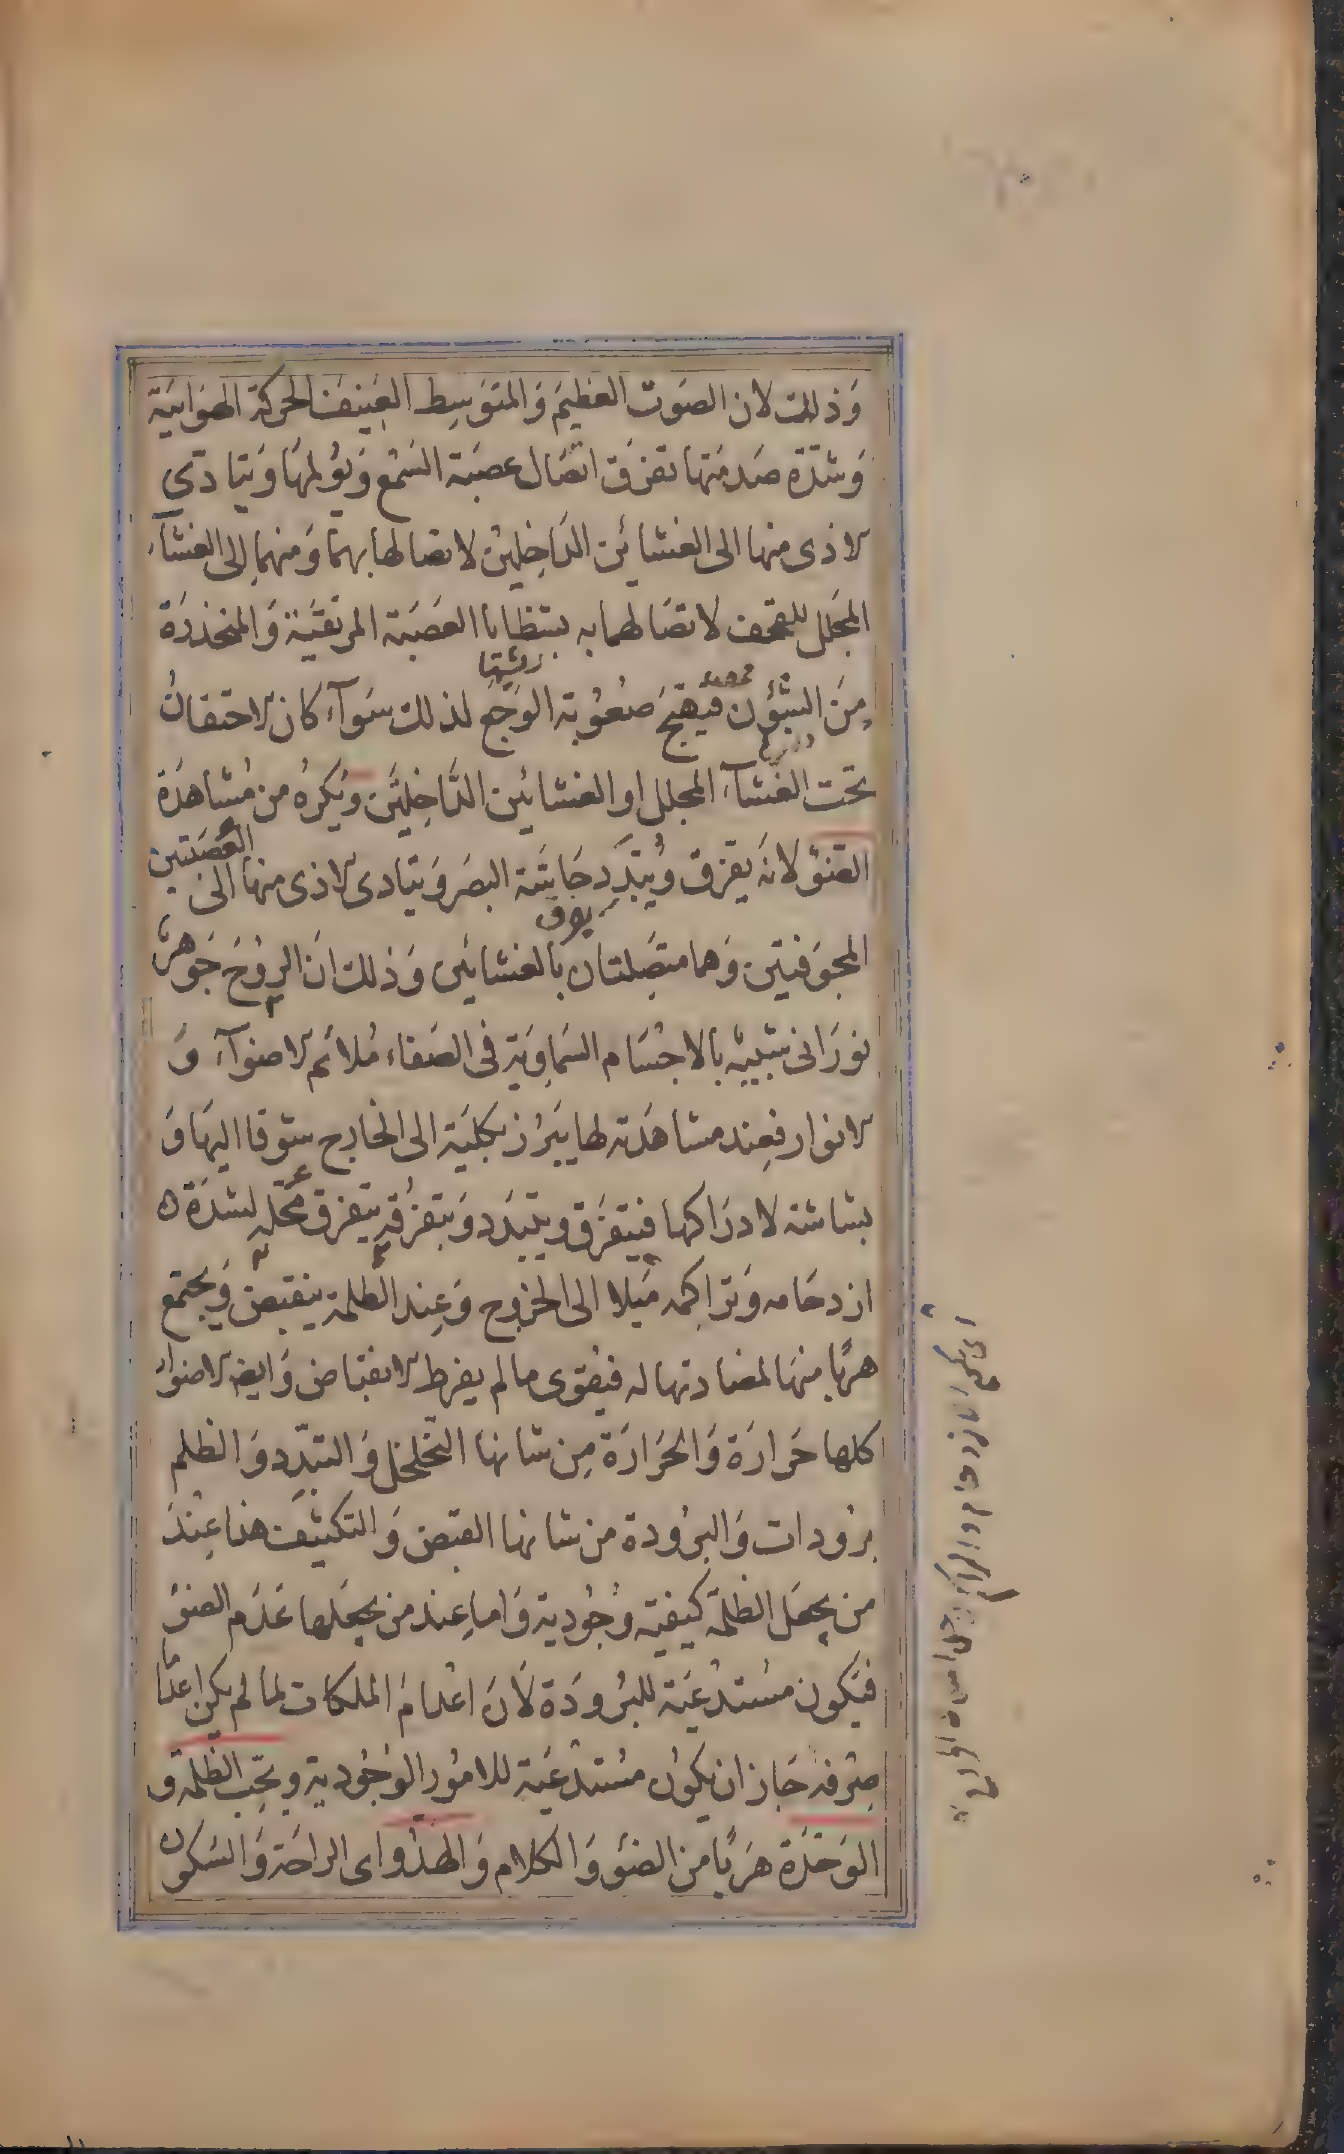 وَذلك لان الصَوت العظيمَ وَالمتوَسِط العَنيفَ الحركة الهوَائية
وَشدّة صَدمَتها تفرَق اتصَال عصَبَة السَمْع وَيؤلمهَا وَيتادّى
الاذى منها الى الغشائين الدَاخِلَين لاتصالها بهمَا وَمنهما الى الغشآء
المجَلل للقحف لاتصَالهما به بشظايا العَصَبَة المرتقيَة وَالمنحَدرَة
مِنَ الشؤن فيهيّج صُعُوبة الوَجَع لذلك سَوآء كان الاحتقان
تحت الغشآء المجلل او الغشائين الدَّاخِلَيَن وَيُكره من مُشاهدَة
الضَوْ لانهَ يفرق وَيُبَدِّد حَاسَّة البصَر وَيتادى الاذى منها الى العَصَبتين
المجَوفتين وَهما متصِلتان بالغشائين وَذلك انَ الروُحَ جَوهر
نورَانى شبيه بالاجسَام السَماوَية فى الصَفاء مُلائم للاضوآء وَ
الانوار فعِند مشاهدَته لها يَبَرُز بكليَة الى الخارج شوقا اليهَا وَ
بشاشة لادرَاكها فيتفرَق ويتبدَد وَبتفرُقه يتفرق محَله لشدَة
ازدحَامه وَتراكمه مَيلا الى الخروج وَعِند الظلمة ينقبض وَيجتمع
هربًا منهَا لمضادتها له فيَقوى ما لم يفرط الانقباض وَايضا الاضوآء
كلها حَرارَة وَالحَرَارَة مِن شانها التخلخل وَالتبَدّد وَالظلم
بُرُودات وَالبرُودة من شانها القبض وَالتكثيف هذا عِنْدَ
من يجعَل الظلمَة كيفية وُجُودية وَاما عِند من يجعَلها عَدَم الضوْ
فتكون مسُتدْعَية للبرُودَة لاَنَ اعْدَام الملكات لما لم يكن اعدَامًا
صِرفه جَاز ان يكوُن مسُتدْعَية للامُور الوُجُودية ويحِّب الظلمة و
الوَحْدَة هَربًا من الضَوْ وَالكلام وَالهدُو اى الراحَة وَالسكون